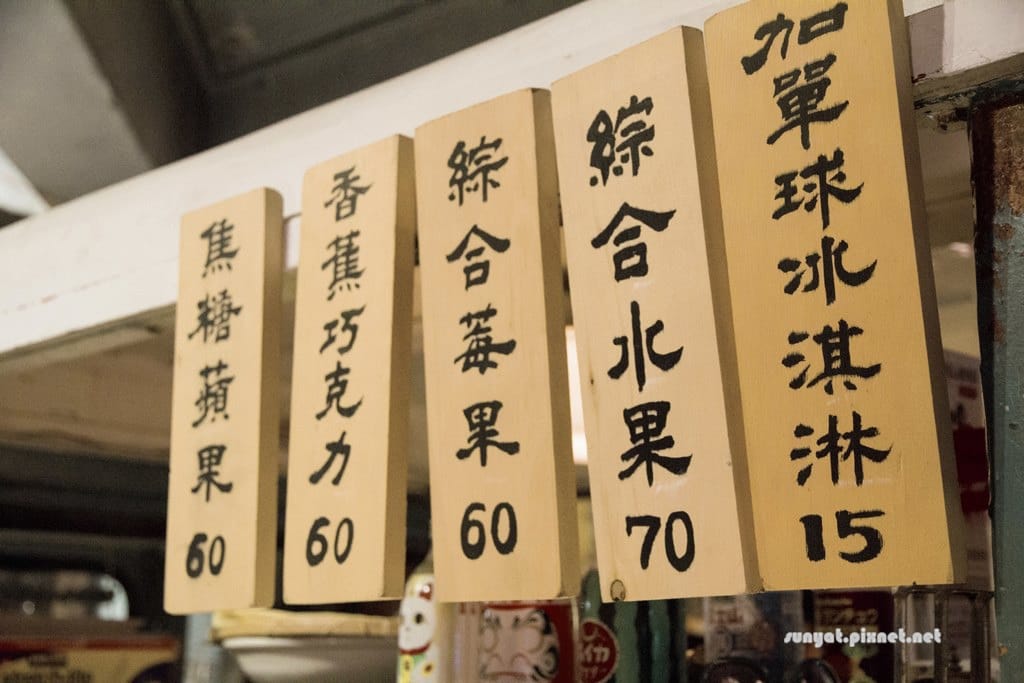 焦糖蘋果 60
香蕉巧克力 60
綜合莓果 60
綜合水果 70
加單球冰淇淋 15
sunyat.pixnet.net